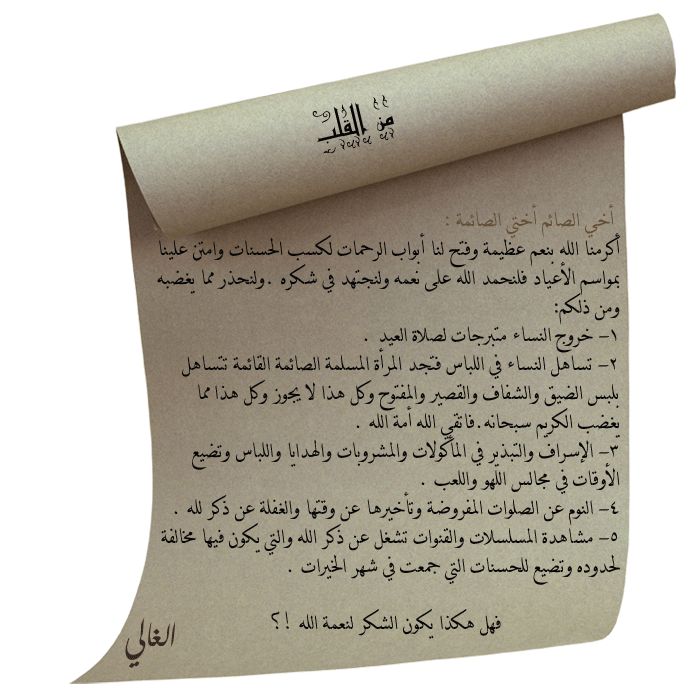 من القلب
أخي الصائم أختي الصائمة :
أكرمنا الله بنعم عظيمة وفتح لنا أبواب الرحمات لكسب الحسنات وامتن علينا
بمواسم الأعياد فلنحمد الله على نعمه ولنجتهد في شكره .ولنحذر مما يغضبه
ومن ذلكم:
١- خروج النساء متبرجات لصلاة العيد .
٢- تساهل النساء في اللباس فتجد المرأة المسلمة الصائمة القائمة تتساهل
بلبس الضيق والشفاف والقصير والمفتوح وكل هذا لا يجوز وكل هذا مما
يغضب الكريم سبحانه.فاتقي الله أمة الله .
٣- الإسراف والتبذير في المأكولات والمشروبات والهدايا واللباس وتضيع
الأوقات في مجالس اللهو واللعب .
٤- النوم عن الصلوات المفروضة وتأخيرها عن وقتها والغفلة عن ذكر لله .
٥- مشاهدة المسلسلات والقنوات تشغل عن ذكر الله والتي يكون فيها مخالفة
لحدوده وتضيع للحسنات التي جمعت في شهر الخيرات .
فهل هكذا يكون الشكر لنعمة الله !؟
الغالي